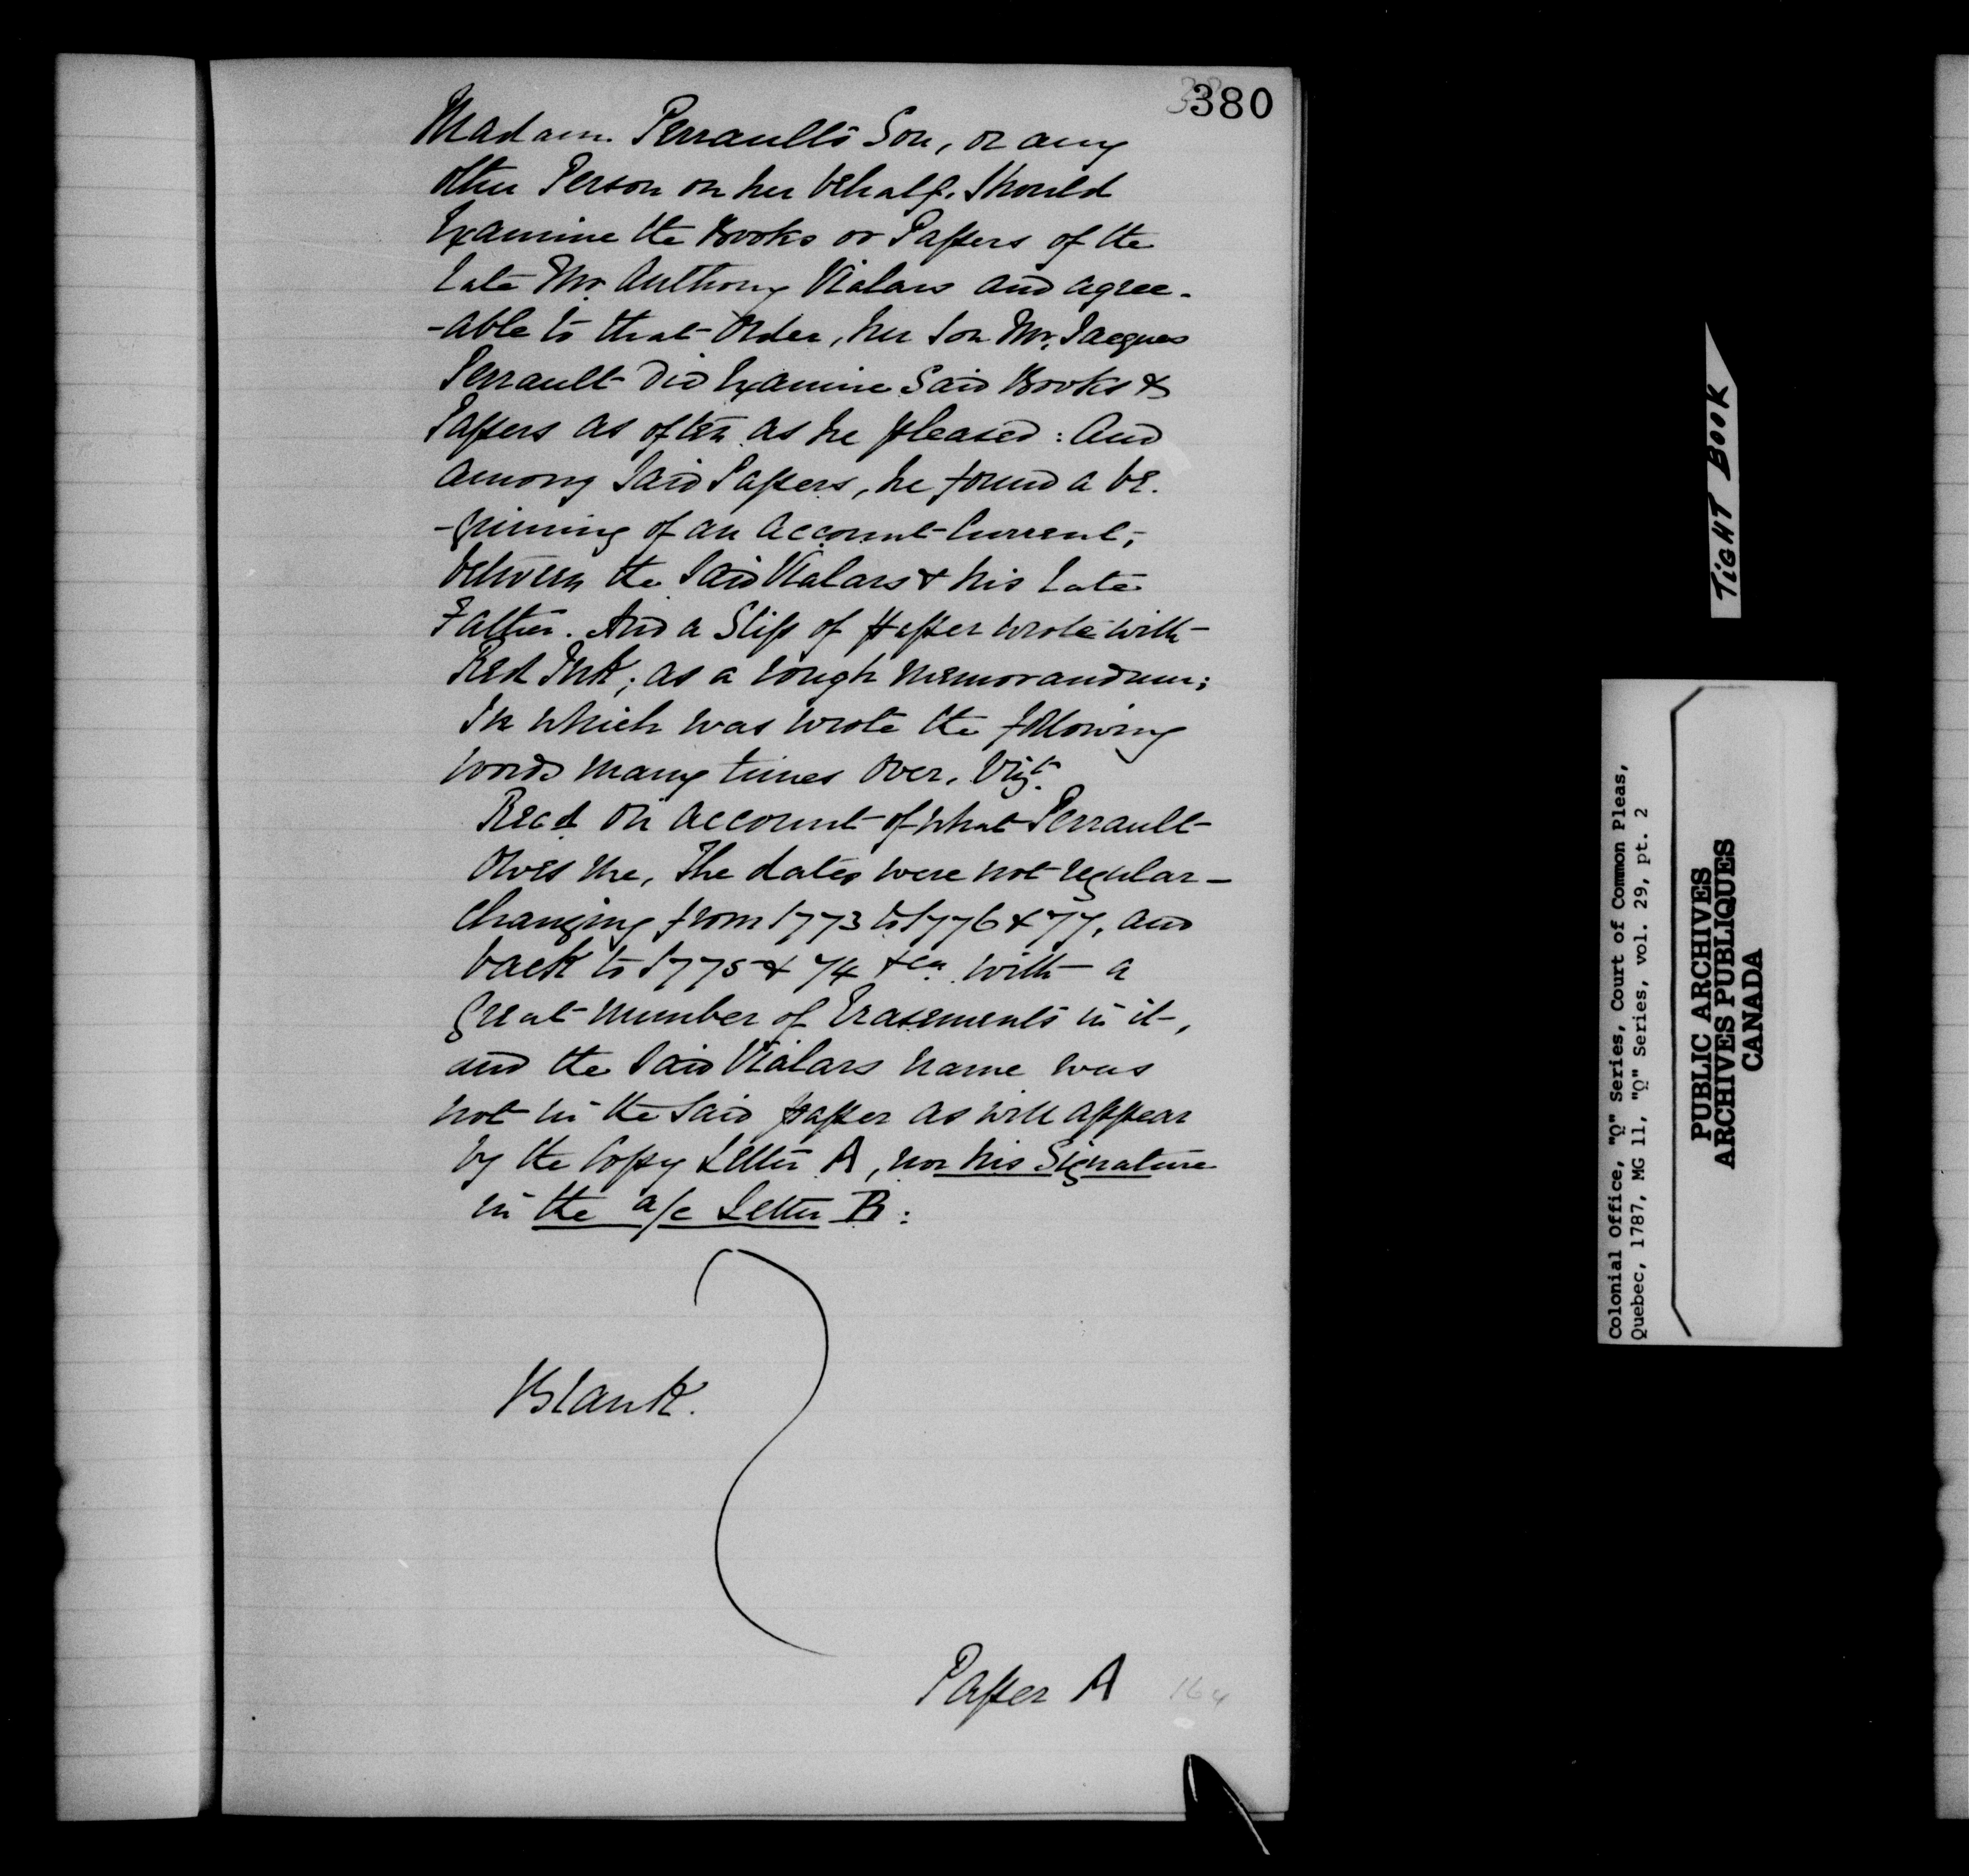 380
Madam Perrault's Son, or any
other Person on her behalf, Should
Examine the Books or Papers of the
Late Mr. Anthony Vialars and agree-
-able to that Order, her Son Mr. Jacques
Perrault Did Examine Said Books &
Papers as often as he pleased: And
among Said Papers, he found a be-
-ginning of an Account Current,
between the Said Vialars & his Late
Father. And a Slip of Paper wrote with
Red Ink; as a rough Memorandum;
In which was wrote the following
words many times over, Vizt.
Recd. on account of what Perrault
owes me, The dates were not regular
Changing from 1773 to 1776 & 77, and
back to 1775 & 74 &ca. with a
great number of Erasements in it,
and the Said Vialars name was
not in the Said paper as will appear
by the Copy Letter A, nor his Signature
in the a/c Letter B:
Blank.
Paper A
164
TIGHT BOOK
Colonial Office, "Q" Series, Court of Common Pleas,
Quebec, 1787, MG 11, "Q" Series, vol. 29, pt. 2
PUBLIC ARCHIVES
ARCHIVES PUBLIQUES
CANADA